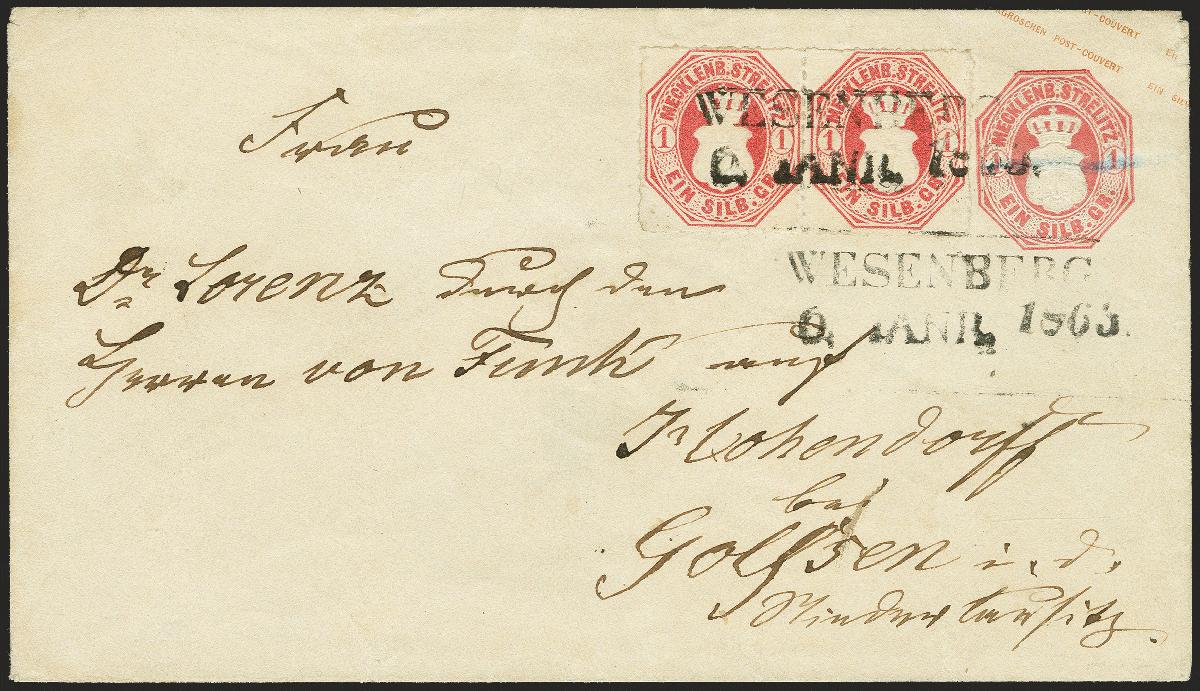 GROSCHEN POST-COUVERT
POST-COUVERT
EIN
MECKLENB. STRELITZ
1 1
EIN SILB. GR.
MECKLENB. STRELITZ
1 1
EIN SILB. GR.
MECKLENB. STRELITZ
1 1
EIN SILB. GR.
WESENBERG
WESENBERG
1863.
Frau
Dr Lorenz durch den
Herren von Funk auf
Hohendorff
bei
Golssen i. d.
Niederlausitz.